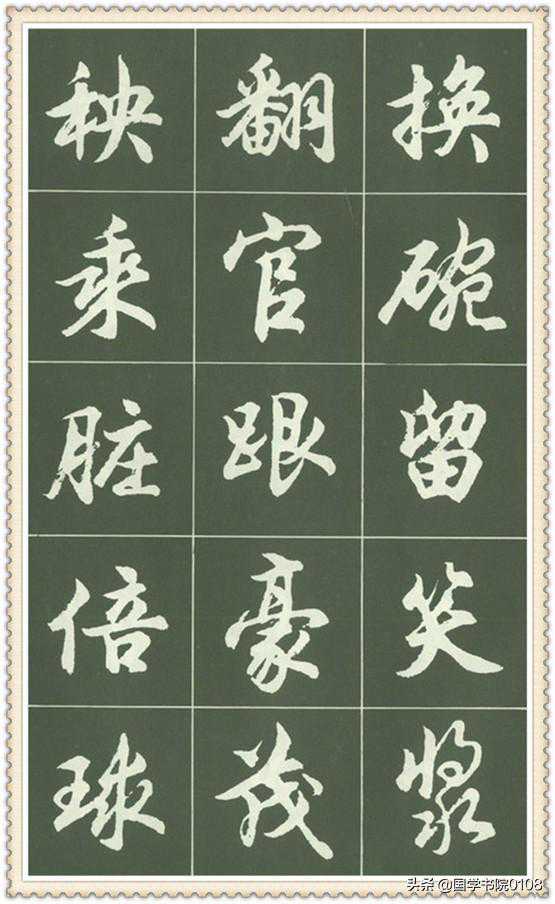 换碗留笑浆
翻官跟豪茂
秧乘脏倍球
头条 @国学书院0108